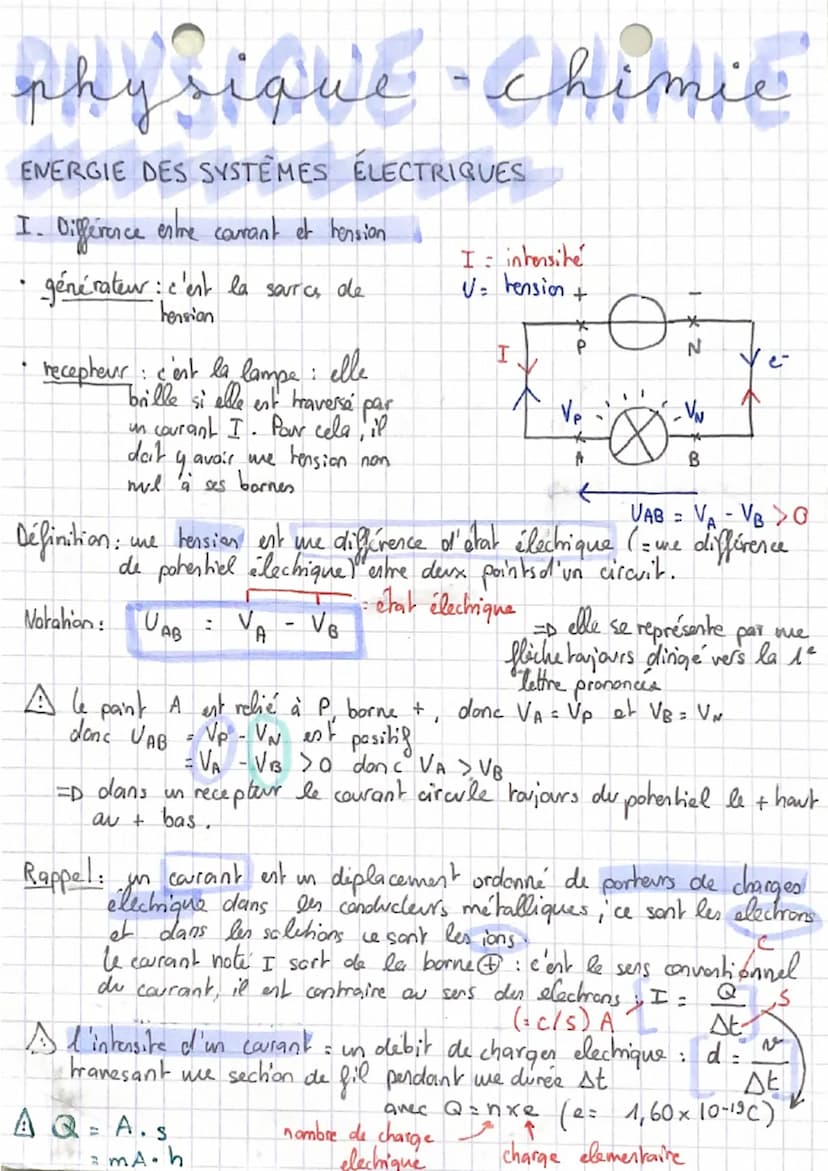 PHYSIQUE-CHIMIE
physique - chimie
ENERGIE DES SYSTÈMES ÉLECTRIQUES
I. Différence entre courant et tension
• générateur : c'est la source de
tension
• recepteur : c'est la lampe : elle
brille si elle est traversé par
un courant I. Pour cela, il
doit y avoir une tension non
nul à ses bornes
I = intensité
U = tension
+ -
P N
I e-
VP VN
A B
UAB = VA - VB > 0
Définition : une tension est une différence d'état électrique (= une différence
de potentiel electrique) entre deux points d'un circuit.
= état électrique
Notation : UAB = VA - VB
=D elle se représente par une
flèche toujours dirigé vers la 1e
lettre prononcée
⚠ le point A est relié à P, borne +, donc VA = VP et VB = VN
donc UAB = VP - VN est positif
= VA - VB > 0 donc VA > VB
=D dans un recepteur le courant circule toujours du potentiel le + haut
au + bas.
Rappel : un courant est un déplacement ordonné de porteurs de charges
électrique dans les conducteurs métalliques, ce sont les electrons
et dans les solutions ce sont les ions.
le courant noté I sort de la borne ⊕ : c'est le sens conventionnel
du courant, il est contraire au sens des electrons ; I = Q / Δt
C
S
(= C/S) A
⚠ l'intensite d'un courant = un débit de charges electrique : d = v / Δt
traversant une section de fil pendant une durée Δt
avec Q = n x e (e = 1,60 x 10-19 C)
⚠ Q = A . s
= mA . h
nombre de charge
electrique
charge elementaire